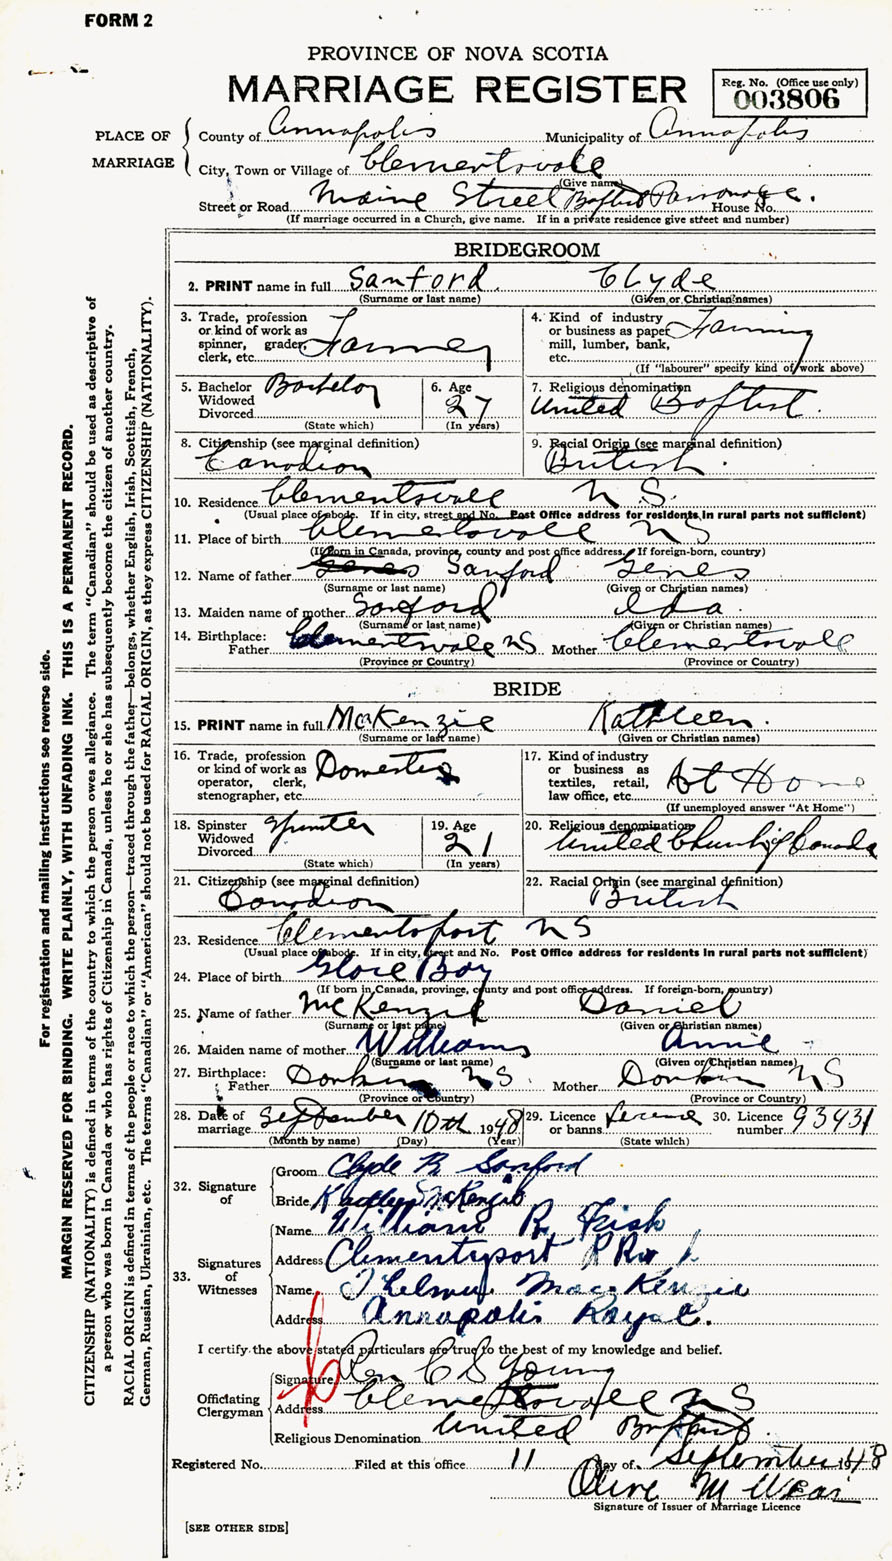 FORM 2
PROVINCE OF NOVA SCOTIA
MARRIAGE REGISTER
Reg. No. (Office use only)
003806
PLACE OF MARRIAGE
County of Annapolis Municipality of Annapolis
City, Town or Village of Clementsvale
(Give name)
Street or Road Maine Street Baptist Parsonage. House No.
(If marriage occurred in a Church, give name. If in a private residence give street and number)
BRIDEGROOM
2. PRINT name in full Sanford Clyde
(Surname or last name) (Given or Christian names)
3. Trade, profession or kind of work as spinner, grader, clerk, etc. Farmer
4. Kind of industry or business as paper mill, lumber, bank, etc. Farming
(If "labourer" specify kind of work above)
5. Bachelor Widowed Divorced Bachelor
(State which)
6. Age 27
(In years)
7. Religious denomination United Baptist.
8. Citizenship (see marginal definition) Canadian
9. Racial Origin (see marginal definition) British.
10. Residence Clementsvale N.S.
(Usual place of abode. If in city, street and No. Post Office address for residents in rural parts not sufficient)
11. Place of birth Clementsvale NS
(If born in Canada, province, county and post office address. If foreign-born, country)
12. Name of father Sanford
(Surname or last name) (Given or Christian names)
13. Maiden name of mother Sanford Ida
(Surname or last name) (Given or Christian names)
14. Birthplace: Father Clementsvale NS. Mother Clementsvale
(Province or Country) (Province or Country)
BRIDE
15. PRINT name in full McKenzie Kathleen.
(Surname or last name) (Given or Christian names)
16. Trade, profession or kind of work as operator, clerk, stenographer, etc. Domestic
17. Kind of industry or business as textiles, retail, law office, etc. At Home
(If unemployed answer "At Home")
18. Spinster Widowed Divorced Spinster
(State which)
19. Age 21
(In years)
20. Religious denomination United Church of Canada
21. Citizenship (see marginal definition) Canadian
22. Racial Origin (see marginal definition) British
23. Residence Clementsport NS
(Usual place of abode. If in city, street and No. Post Office address for residents in rural parts not sufficient)
24. Place of birth Glace Bay
(If born in Canada, province, county and post office address. If foreign-born, country)
25. Name of father McKenzie Daniel
(Surname or last name) (Given or Christian names)
26. Maiden name of mother Williams Annie
(Surname or last name) (Given or Christian names)
27. Birthplace: Father Donkin NS. Mother Donkin NS
(Province or Country) (Province or Country)
28. Date of marriage September 10th 1948
(Month by name) (Day) (Year)
29. Licence or banns License
(State which)
30. Licence number 93431
32. Signature of
Groom Clyde R Sanford
Bride Kathleen McKenzie
33. Signatures of Witnesses
Name William R. Fisk
Address Clementsport RR no 1
Name Thelma MacKenzie
Address Annapolis Royal.
I certify the above stated particulars are true to the best of my knowledge and belief.
Officiating Clergyman
Signature C S Young
Address Clementsvale NS
Religious Denomination United Baptist
Registered No. Filed at this office 11 day of September 1948
Olive M Wear
Signature of Issuer of Marriage Licence
[SEE OTHER SIDE]
For registration and mailing instructions see reverse side.
MARGIN RESERVED FOR BINDING. WRITE PLAINLY, WITH UNFADING INK. THIS IS A PERMANENT RECORD.
CITIZENSHIP (NATIONALITY) is defined in terms of the country to which the person owes allegiance. The term "Canadian" should be used as descriptive of
a person who was born in Canada or who has rights of Citizenship in Canada, unless he or she has subsequently become the citizen of another country.
RACIAL ORIGIN is defined in terms of the people or race to which the person—traced through the father—belongs, whether English, Irish, Scottish, French,
German, Russian, Ukrainian, etc. The terms "Canadian" or "American" should not be used for RACIAL ORIGIN, as they express CITIZENSHIP (NATIONALITY).